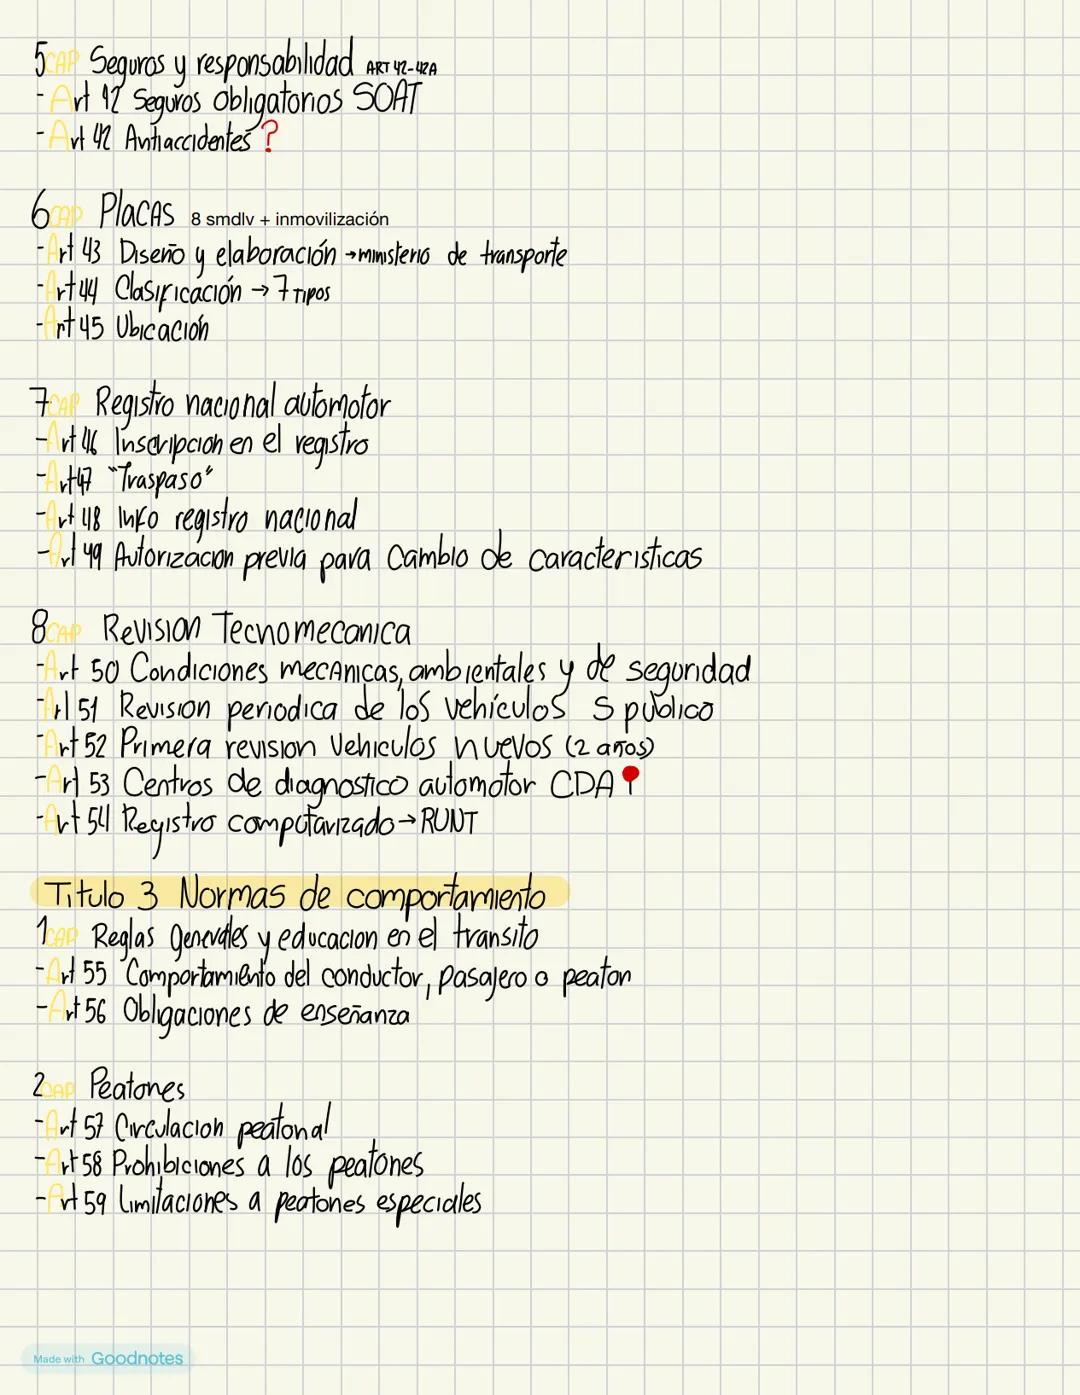 5 CAP Seguros y responsabilidad ART 42-42A
- Art 42 Seguros obligatorios SOAT
- Art 42 Antiaccidentes ?
6 CAP Placas 8 smdlv + inmovilización
- Art 43 Diseño y elaboración → ministerio de transporte
- Art 44 Clasificación → 7 Tipos
- Art 45 Ubicación
7 CAP Registro nacional automotor
- Art 46 Inscripcion en el registro
- Art 47 "Traspaso"
- Art 48 Info registro nacional
- Art 49 Autorizacion previa para Cambio de caracteristicas
8 CAP Revision Tecnomecanica
- Art 50 Condiciones mecanicas, ambientales y de seguridad
- Art 51 Revision periodica de los vehículos S público
- Art 52 Primera revision Vehiculos nuevos (2 años)
- Art 53 Centros de diagnostico automotor CDA
- Art 54 Registro computarizado → RUNT
Titulo 3 Normas de comportamiento
1 CAP Reglas generales y educacion en el transito
- Art 55 Comportamiento del conductor, pasajero o peaton
- Art 56 Obligaciones de enseñanza
2 CAP Peatones
- Art 57 Circulacion peatonal
- Art 58 Prohibiciones a los peatones
- Art 59 Limitaciones a peatones especiales
Made with Goodnotes